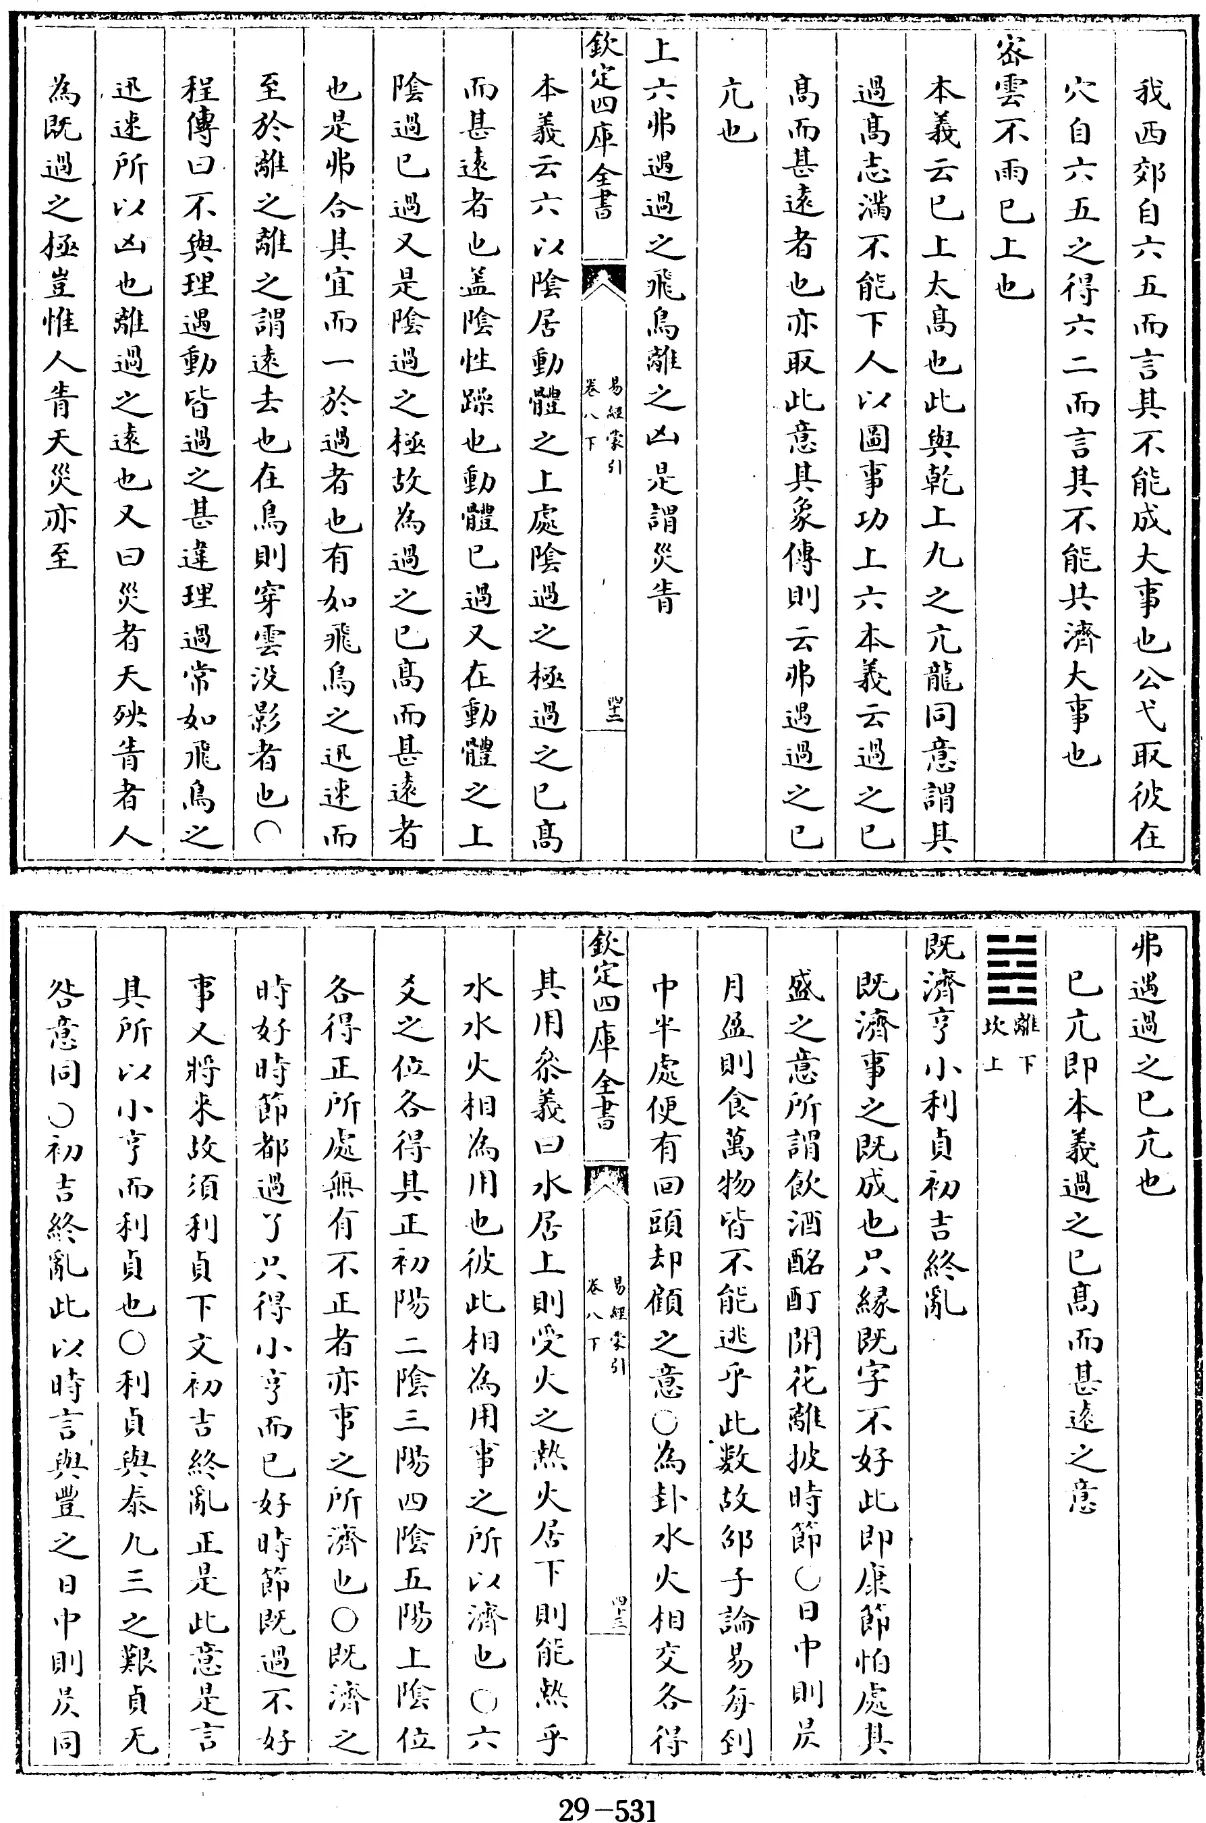 我西郊自六五而言其不能成大事也公弋取彼在
穴自六五之得六二而言其不能共濟大事也
密雲不雨已上也
本義云已上太髙也此與乾上九之亢龍同意謂其
過髙志滿不能下人以圖事功上六本義云過之已
髙而甚遠者也亦取此意其象傳則云弗遇過之已
亢也
上六弗遇過之飛鳥離之凶是謂災眚
欽定四庫全書
易經蒙引
卷八下
四十二
本義云六以陰居動體之上處陰過之極過之已髙
而甚遠者也盖陰性躁也動體已過又在動體之上
陰過已過又是陰過之極故為過之已髙而甚遠者
也是弗合其宜而一於過者也有如飛鳥之迅速而
至於離之離之謂遠去也在鳥則穿雲没影者也○
程傳曰不與理遇動皆過之甚違理過常如飛鳥之
迅速所以凶也離過之遠也又曰災者天殃眚者人
為既過之極豈惟人眚天災亦至
弗遇過之已亢也
已亢即本義過之已髙而甚逺之意
䷾離下坎上
既濟亨小利貞初吉終亂
既濟事之既成也只縁既字不好此即康節怕處其
盛之意所謂飲酒酩酊開花離披時節○日中則昃
月盈則食萬物皆不能逃乎此數故邵子論易每到
中半處便有回頭却顧之意○為卦水火相交各得
欽定四庫全書
易經蒙引
卷八下
四十三
其用叅義曰水居上則受火之熱火居下則能熱乎
水水火相為用也彼此相為用事之所以濟也○六
爻之位各得其正初陽二陰三陽四陰五陽上陰位
各得正所處無有不正者亦事之所濟也○既濟之
時好時節都過了只得小亨而已好時節既過不好
事又將來故須利貞下文初吉終亂正是此意是言
其所以小亨而利貞也○利貞與泰九三之艱貞无
咎意同○初吉終亂此以時言與豐之日中則昃同
29-531